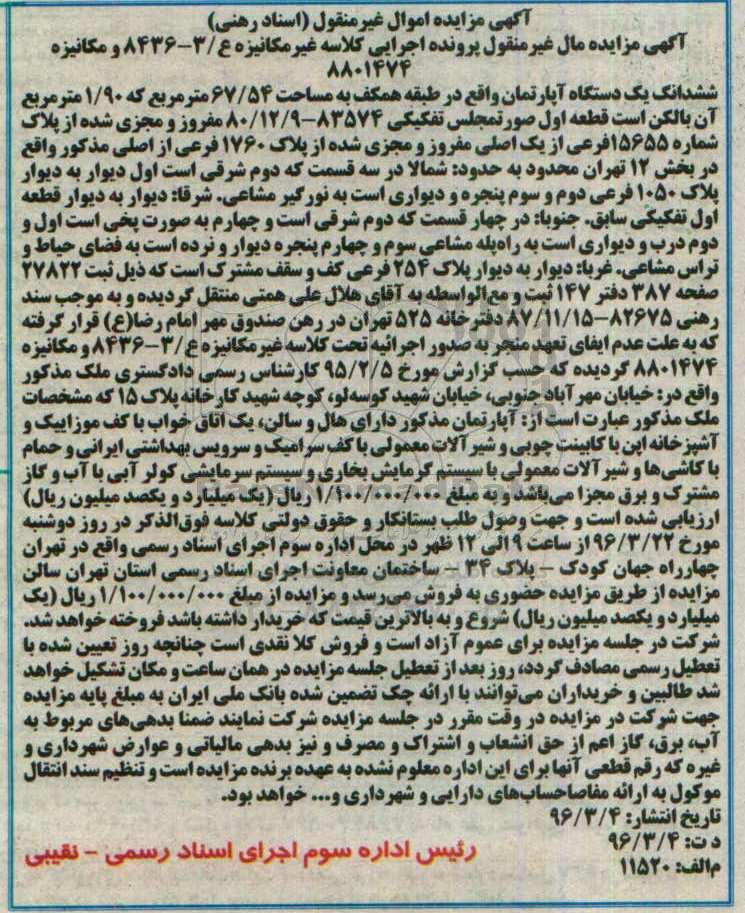 آگهی مزایده اموال غیرمنقول (اسناد رهنی)
آگهی مزایده مال غیرمنقول پرونده اجرایی کلاسه غیرمکانیزه ع/۳-۸۴۳۶ و مکانیزه
۸۸۰۱۴۷۴
ششدانگ یک دستگاه آپارتمان واقع در طبقه همکف به مساحت ۶۷/۵۴ مترمربع که ۱/۹۰ مترمربع
آن بالکن است قطعه اول صورتمجلس تفکیکی ۸۳۵۷۴-۸۰/۱۲/۹ مفروز و مجزی شده از پلاک
شماره ۱۵۶۵۵فرعی از یک اصلی مفروز و مجزی شده از پلاک ۱۷۶۰ فرعی از اصلی مذکور واقع
در بخش ۱۲ تهران محدود به حدود: شمالا در سه قسمت که دوم شرقی است اول دیوار به دیوار
پلاک ۱۰۵۰ فرعی دوم و سوم پنجره و دیواری است به نورگیر مشاعی. شرقا: دیوار به دیوار قطعه
اول تفکیکی سابق. جنوبا: در چهار قسمت که دوم شرقی است و چهارم به صورت پخی است اول و
دوم درب و دیواری است به راه‌پله مشاعی سوم و چهارم پنجره دیوار و نرده است به فضای حیاط و
تراس مشاعی. غربا: دیوار به دیوار پلاک ۲۵۴ فرعی کف و سقف مشترک است که ذیل ثبت ۲۷۸۲۲
صفحه ۳۸۷ دفتر ۱۴۷ ثبت و مع‌الواسطه به آقای هلال علی همتی منتقل گردیده و به موجب سند
رهنی ۸۲۶۷۵-۸۷/۱۱/۱۵ دفترخانه ۵۲۵ تهران در رهن صندوق مهر امام رضا(ع) قرار گرفته
که به علت عدم ایفای تعهد منجر به صدور اجرائیه تحت کلاسه غیرمکانیزه ع/۳-۸۴۳۶ و مکانیزه
۸۸۰۱۴۷۴ گردیده که حسب گزارش مورخ ۹۵/۲/۵ کارشناس رسمی دادگستری ملک مذکور
واقع در: خیابان مهرآباد جنوبی، خیابان شهید کوسه‌لو، کوچه شهید کارخانه پلاک ۱۵ که مشخصات
ملک مذکور عبارت است از: آپارتمان مذکور دارای هال و سالن، یک اتاق خواب با کف موزاییک و
آشپزخانه اپن با کابینت چوبی و شیرآلات معمولی با کف سرامیک و سرویس بهداشتی ایرانی و حمام
با کاشی‌ها و شیرآلات معمولی با سیستم گرمایش بخاری و سیستم سرمایشی کولر آبی با آب و گاز
مشترک و برق مجزا می‌باشد و به مبلغ ۱/۱۰۰/۰۰۰/۰۰۰ ریال (یک میلیارد و یکصد میلیون ریال)
ارزیابی شده است و جهت وصول طلب بستانکار و حقوق دولتی کلاسه فوق‌الذکر در روز دوشنبه
مورخ ۹۶/۳/۲۲ از ساعت ۹ الی ۱۲ ظهر در محل اداره سوم اجرای اسناد رسمی واقع در تهران
چهارراه جهان کودک - پلاک ۳۴ - ساختمان معاونت اجرای اسناد رسمی استان تهران سالن
مزایده از طریق مزایده حضوری به فروش می‌رسد و مزایده از مبلغ ۱/۱۰۰/۰۰۰/۰۰۰ ریال (یک
میلیارد و یکصد میلیون ریال) شروع و به بالاترین قیمت که خریدار داشته باشد فروخته خواهد شد.
شرکت در جلسه مزایده برای عموم آزاد است و فروش کلا نقدی است چنانچه روز تعیین شده با
تعطیل رسمی مصادف گردد، روز بعد از تعطیل جلسه مزایده در همان ساعت و مکان تشکیل خواهد
شد طالبین و خریداران می‌توانند با ارائه چک تضمین شده بانک ملی ایران به مبلغ پایه مزایده
جهت شرکت در مزایده در وقت مقرر در جلسه مزایده شرکت نمایند ضمنا بدهی‌های مربوط به
آب، برق، گاز اعم از حق انشعاب و اشتراک و مصرف و نیز بدهی مالیاتی و عوارض شهرداری و
غیره که رقم قطعی آنها برای این اداره معلوم نشده به عهده برنده مزایده است و تنظیم سند انتقال
موکول به ارائه مفاصاحساب‌های دارایی و شهرداری و... خواهد بود.
تاریخ انتشار: ۹۶/۳/۴
د ت: ۹۶/۳/۴
م‌الف: ۱۱۵۲۰
رئیس اداره سوم اجرای اسناد رسمی - نقیبی